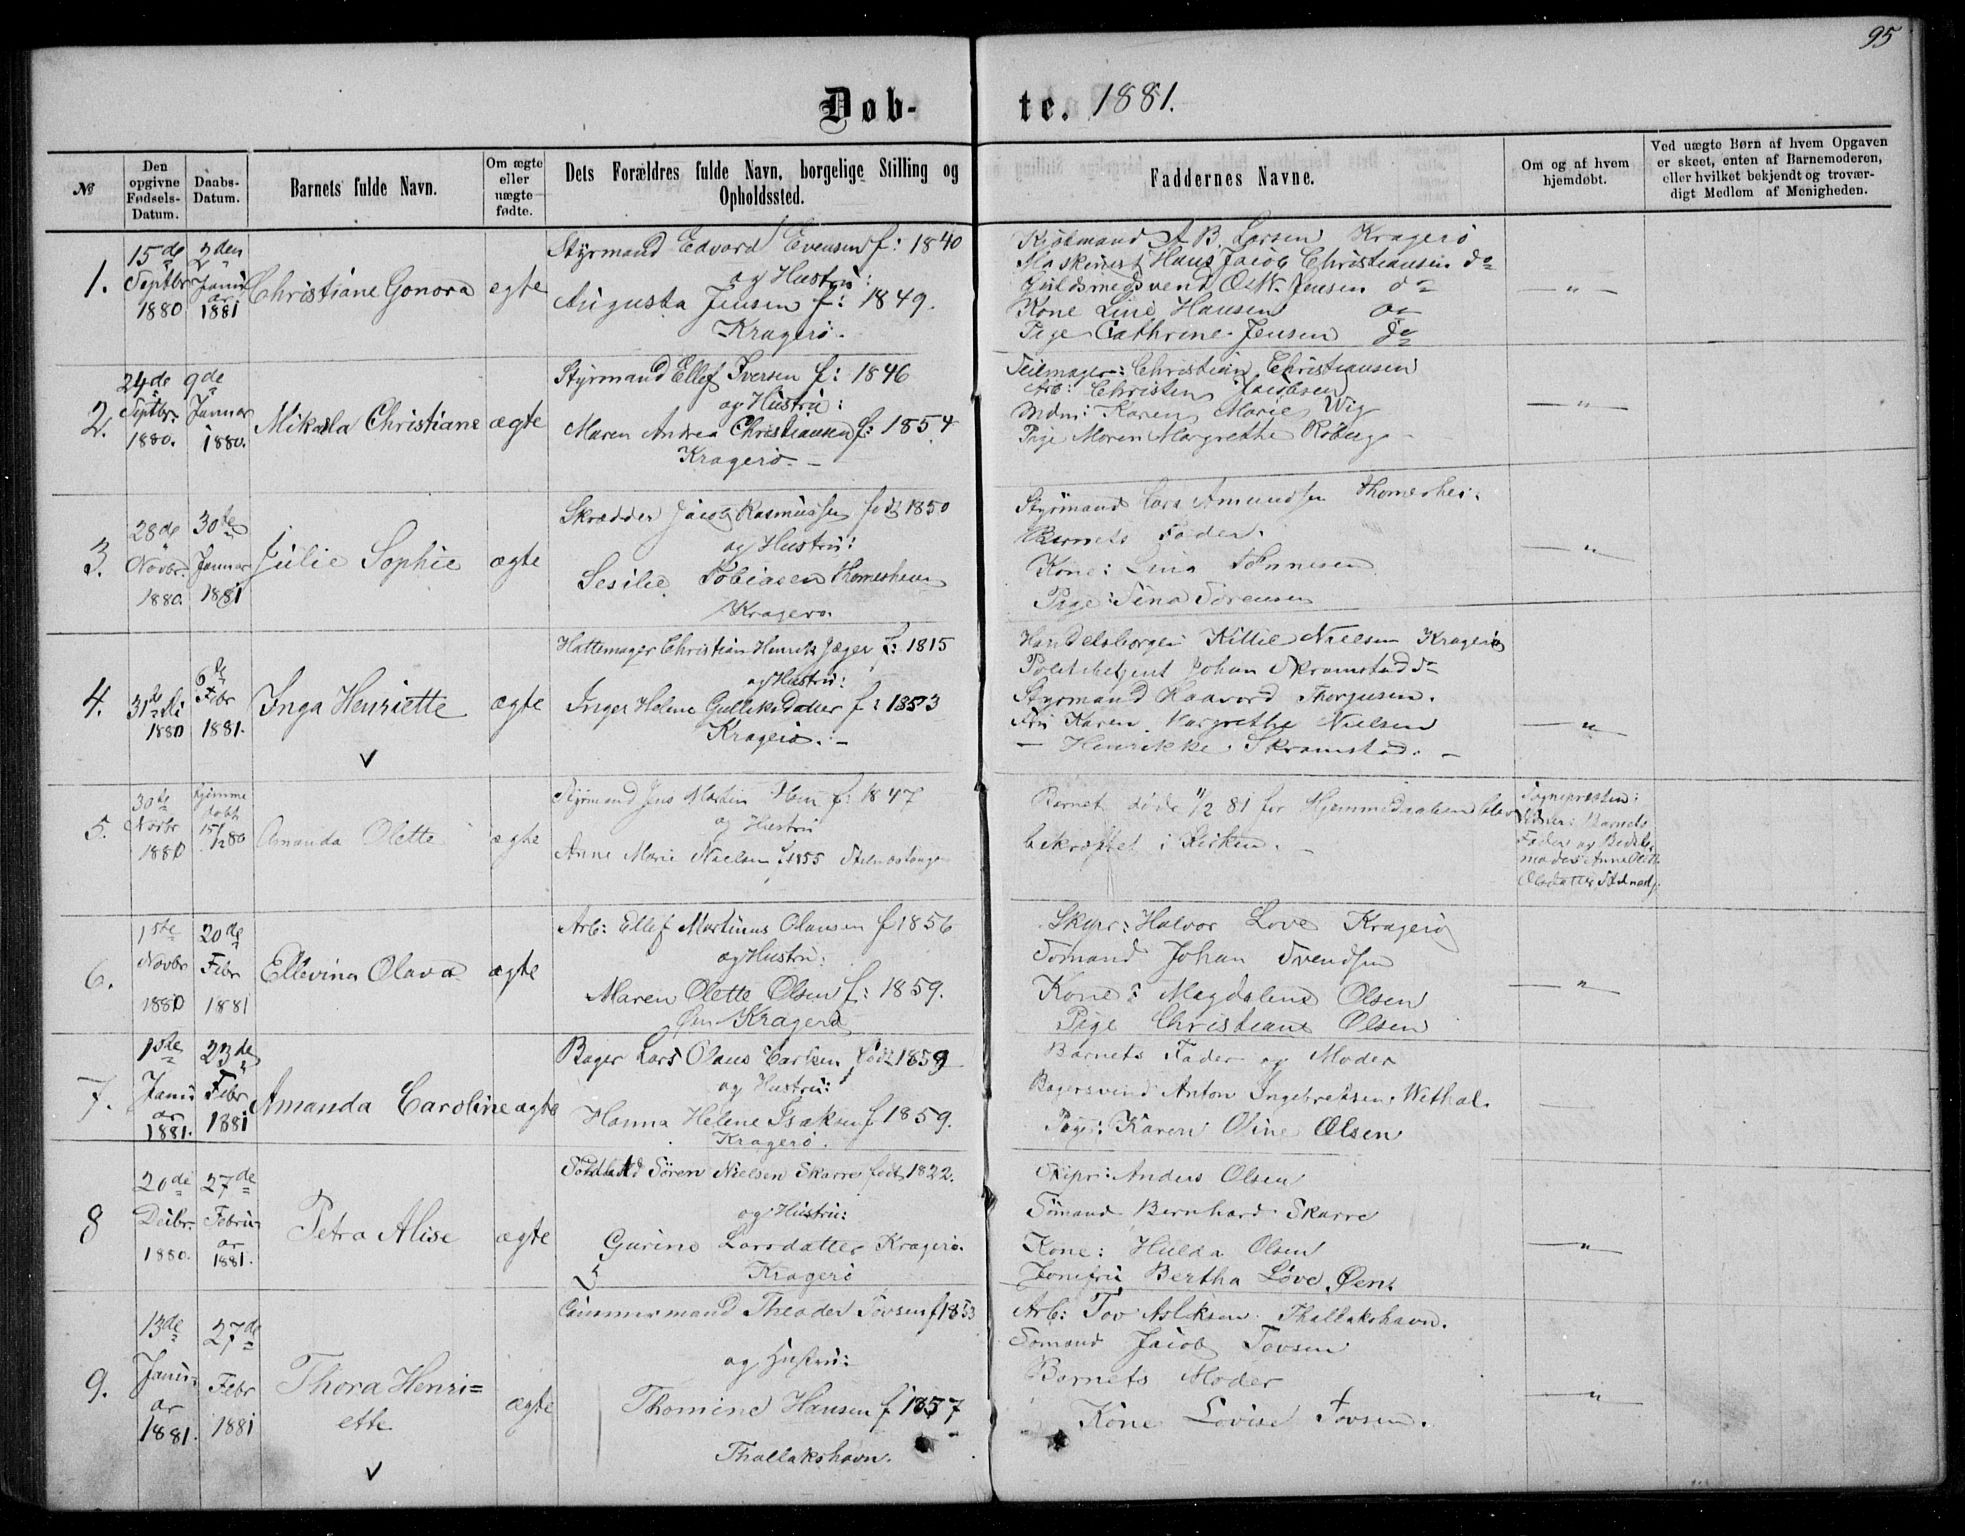 95
Døb-te. 1881.
№
Den opgivne Fødsels-Datum.
Daabs-Datum.
Barnets fulde Navn.
Om ægte eller uægte fødte.
Dets Forældres fulde Navn, borgelige Stilling og Opholdssted.
Faddernes Navne.
Om og af hvem hjemdøbt.
Ved uægte Børn af hvem Opgaven er skeet, enten af Barnemoderen, eller hvilket bekjendt og troværdigt Medlem af Menigheden.
1.
15de Septbr 1880
2den Januar 1881
Christiane Gonora
ægte
Styrmand Edvard Evensen f: 1840
og Hustru:
Augusta Jensen f: 1849.
Kragerø.
Kjøbmand A B. Larsen Kragerø
Maskinist Hans Jacob Christiansen do
Guldsmedsvend O. W. Jensen do
Kone Line Hansen do
Pige Cathrine Jensen do
— " —
2.
24de Septbr. 1880.
9de Januar 1880.
Mikala Christiane
ægte
Styrmand Ellef Iversen f: 1846
og Hustru:
Maren Andrea Christiansen f: 1854
Kragerø. –
Seilmager: Christian Christiansen
Arb: Christen Jacobsen
Mdm: Karen Marie Wig
Pige Maren Margrethe Roberg
— " —
3.
28de Novbr. 1880.
30te Januar 1881
Julie Sophie
ægte
Skrædder Jacob Rasmussen født 1850
og Hustru:
Sesilie Tobiasen Thomesheien
Kragerø.
Styrmand Lars Amundsen Thomeshei.
Barnets Fader.
Kone: Lina Tønnesen
Pige: Sina Sørensen
— " —
4.
31te 1880
6te Febr 1881.
Inga Henriette
ægte
Hattemager Christian Henrik Jæger f: 1815
og Hustru:
Inger Helene Gulliksdatter f: 1853
Kragerø. –
Handelsborger Kittil Nielsen Kragerø
Politibetjent Johan Skramstad do
Styrmand Haavord Thorgusen.
Fru Karen Margrethe Nielsen
— Henrikke Skramstad. –
— " —
v
5.
30te Novbr 1880
hjemme døbt 15/12 80
Amanda Olette
ægte
Styrmand Jens Martin f: 1847
og Hustru
Anne Marie Nielsen f 1855
Barnet døde 11/2 81 før Hjemmedaaben blev
bekræftet i Kirken. –
Sognepræsten:
Vidner: Barnets
Fader og Bedste
moder Anne Olette
Olsdatter
6.
1ste Novbr 1880
20de Febr 1881
Ellevina Olava
ægte
Arb: Ellef Martinus Olausen f 1856
og Hustru:
Maren Olette Olsen f: 1859.
Øen Kragerø
Skpr: Halvor Love Kragerø
Sømand Johan Svendsen
Kone: Magdalene Olsen
Pige Christiane Olsen
— " —
7.
1ste Januar 1881.
23de Febr 1881
Amanda Caroline
ægte
Bager Lars Olaus Carlsen født 1859
og Hustru:
Hanna Helene Isaksen f 1859.
Kragerø.
Barnets Fader og Moder
Bagersvend Anton Ingebretsen Wethal.
Pige: Karen Oline Olsen
8
20de Decbr. 1880.
27de Februar 1881.
Petra Alise
ægte
Søren Nielsen Skarre født 1822.
og Hustru:
Gurine Larsdatter Kragerø.
Kragerø
Skipr: Anders Olsen
Sømand Bernhard Skarre
Kone: Hulda Olsen
Jomfru Bertha Løve. Øen.
— " —
9.
13de Januar 1881.
27de Febr 1881
Thora Henri=
ette
ægte
Tømmermand Theodor Tovsen f 1853
og Hustru:
Thomine Hansen f 1857
Thallakshavn.
Arb: Tov Aslaksen Thallakshavn.
Sømand Jacob Tovsen
Barnets Moder
Kone Lovise Tovsen.
— " —
v